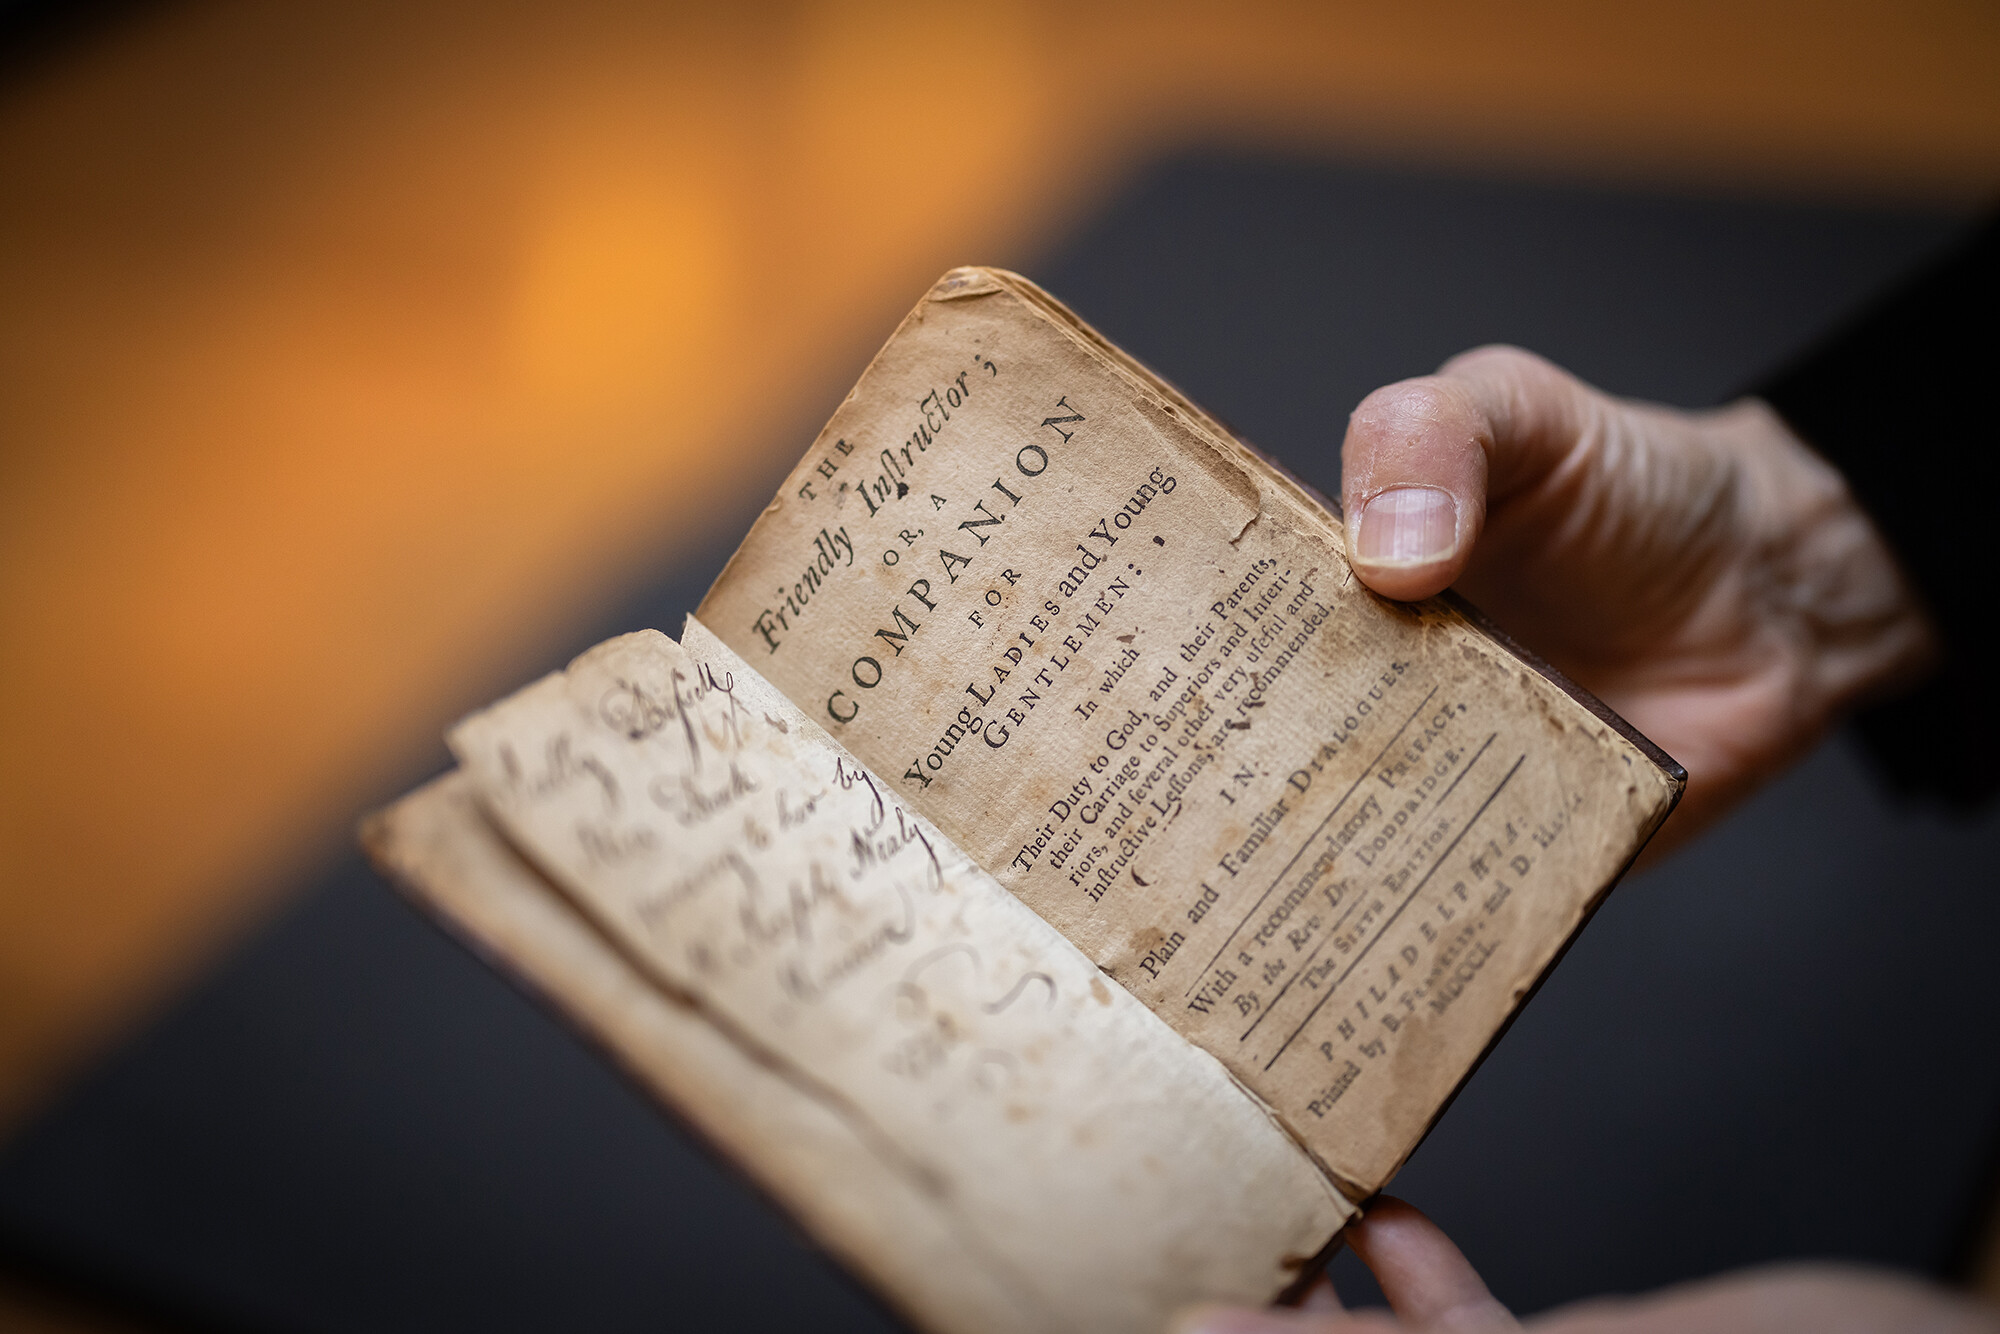 Sally
His Book
to her by
Joseph Nealy
THE
Friendly Inſtructor;
OR, A
COMPANION
FOR
Young LADIES and Young
GENTLEMEN:
In which
Their Duty to God, and their Parents,
their Carriage to Superiors and Inferi-
riors, and ſeveral other very uſeful and
inſtructive Leſſons, are recommended,
IN
Plain and Familiar DIALOGUES.
With a recommendatory PREFACE,
By the Rev. Dr. DODDRIDGE.
The SIXTH EDITION.
PHILADELPHIA:
Printed by B. FRANKLIN, and D. HALL
MDCCL.